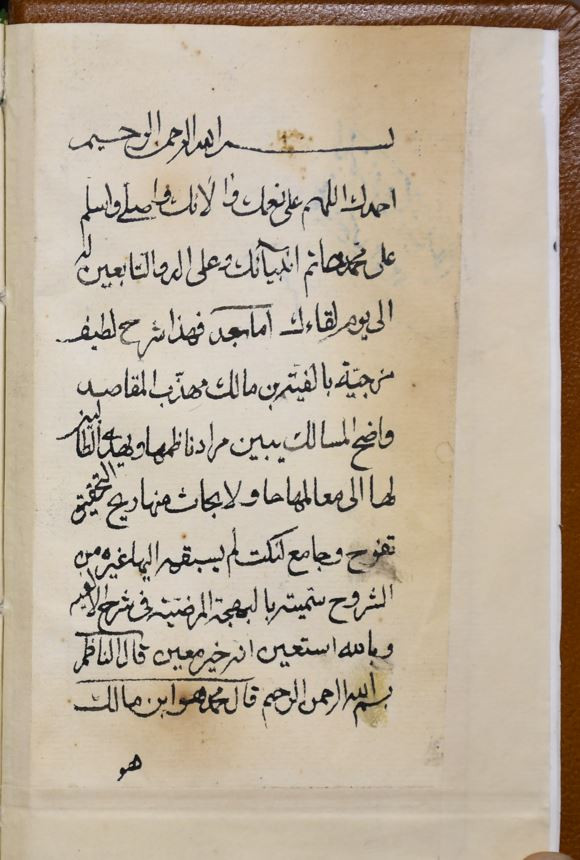 بسم الله الرحمن الرحيم
احمدك اللهم على نعمك والائك واصلى واسلم
على محمد خاتم انبيائك وعلى اله والتابعين له
الى يوم لقاءك اما بعد فهذا شرح لطيف
مزجته بالفية بن مالك مهذب المقاصد
واضح المسالك يبين مراد ناظمها ويهدى الطالبين
لها الى معالمها حاو لابحاث منها ريح التحقيق
تفوح وجامع لنكت لم يسبقه اليها غيره من
الشروح سميته بالبهجة المرضية فى شرح الالفيه
وبالله استعين انه خير معين قال الناظم
بسم الله الرحمن الرحيم قال محمد هو ابن مالك
هو